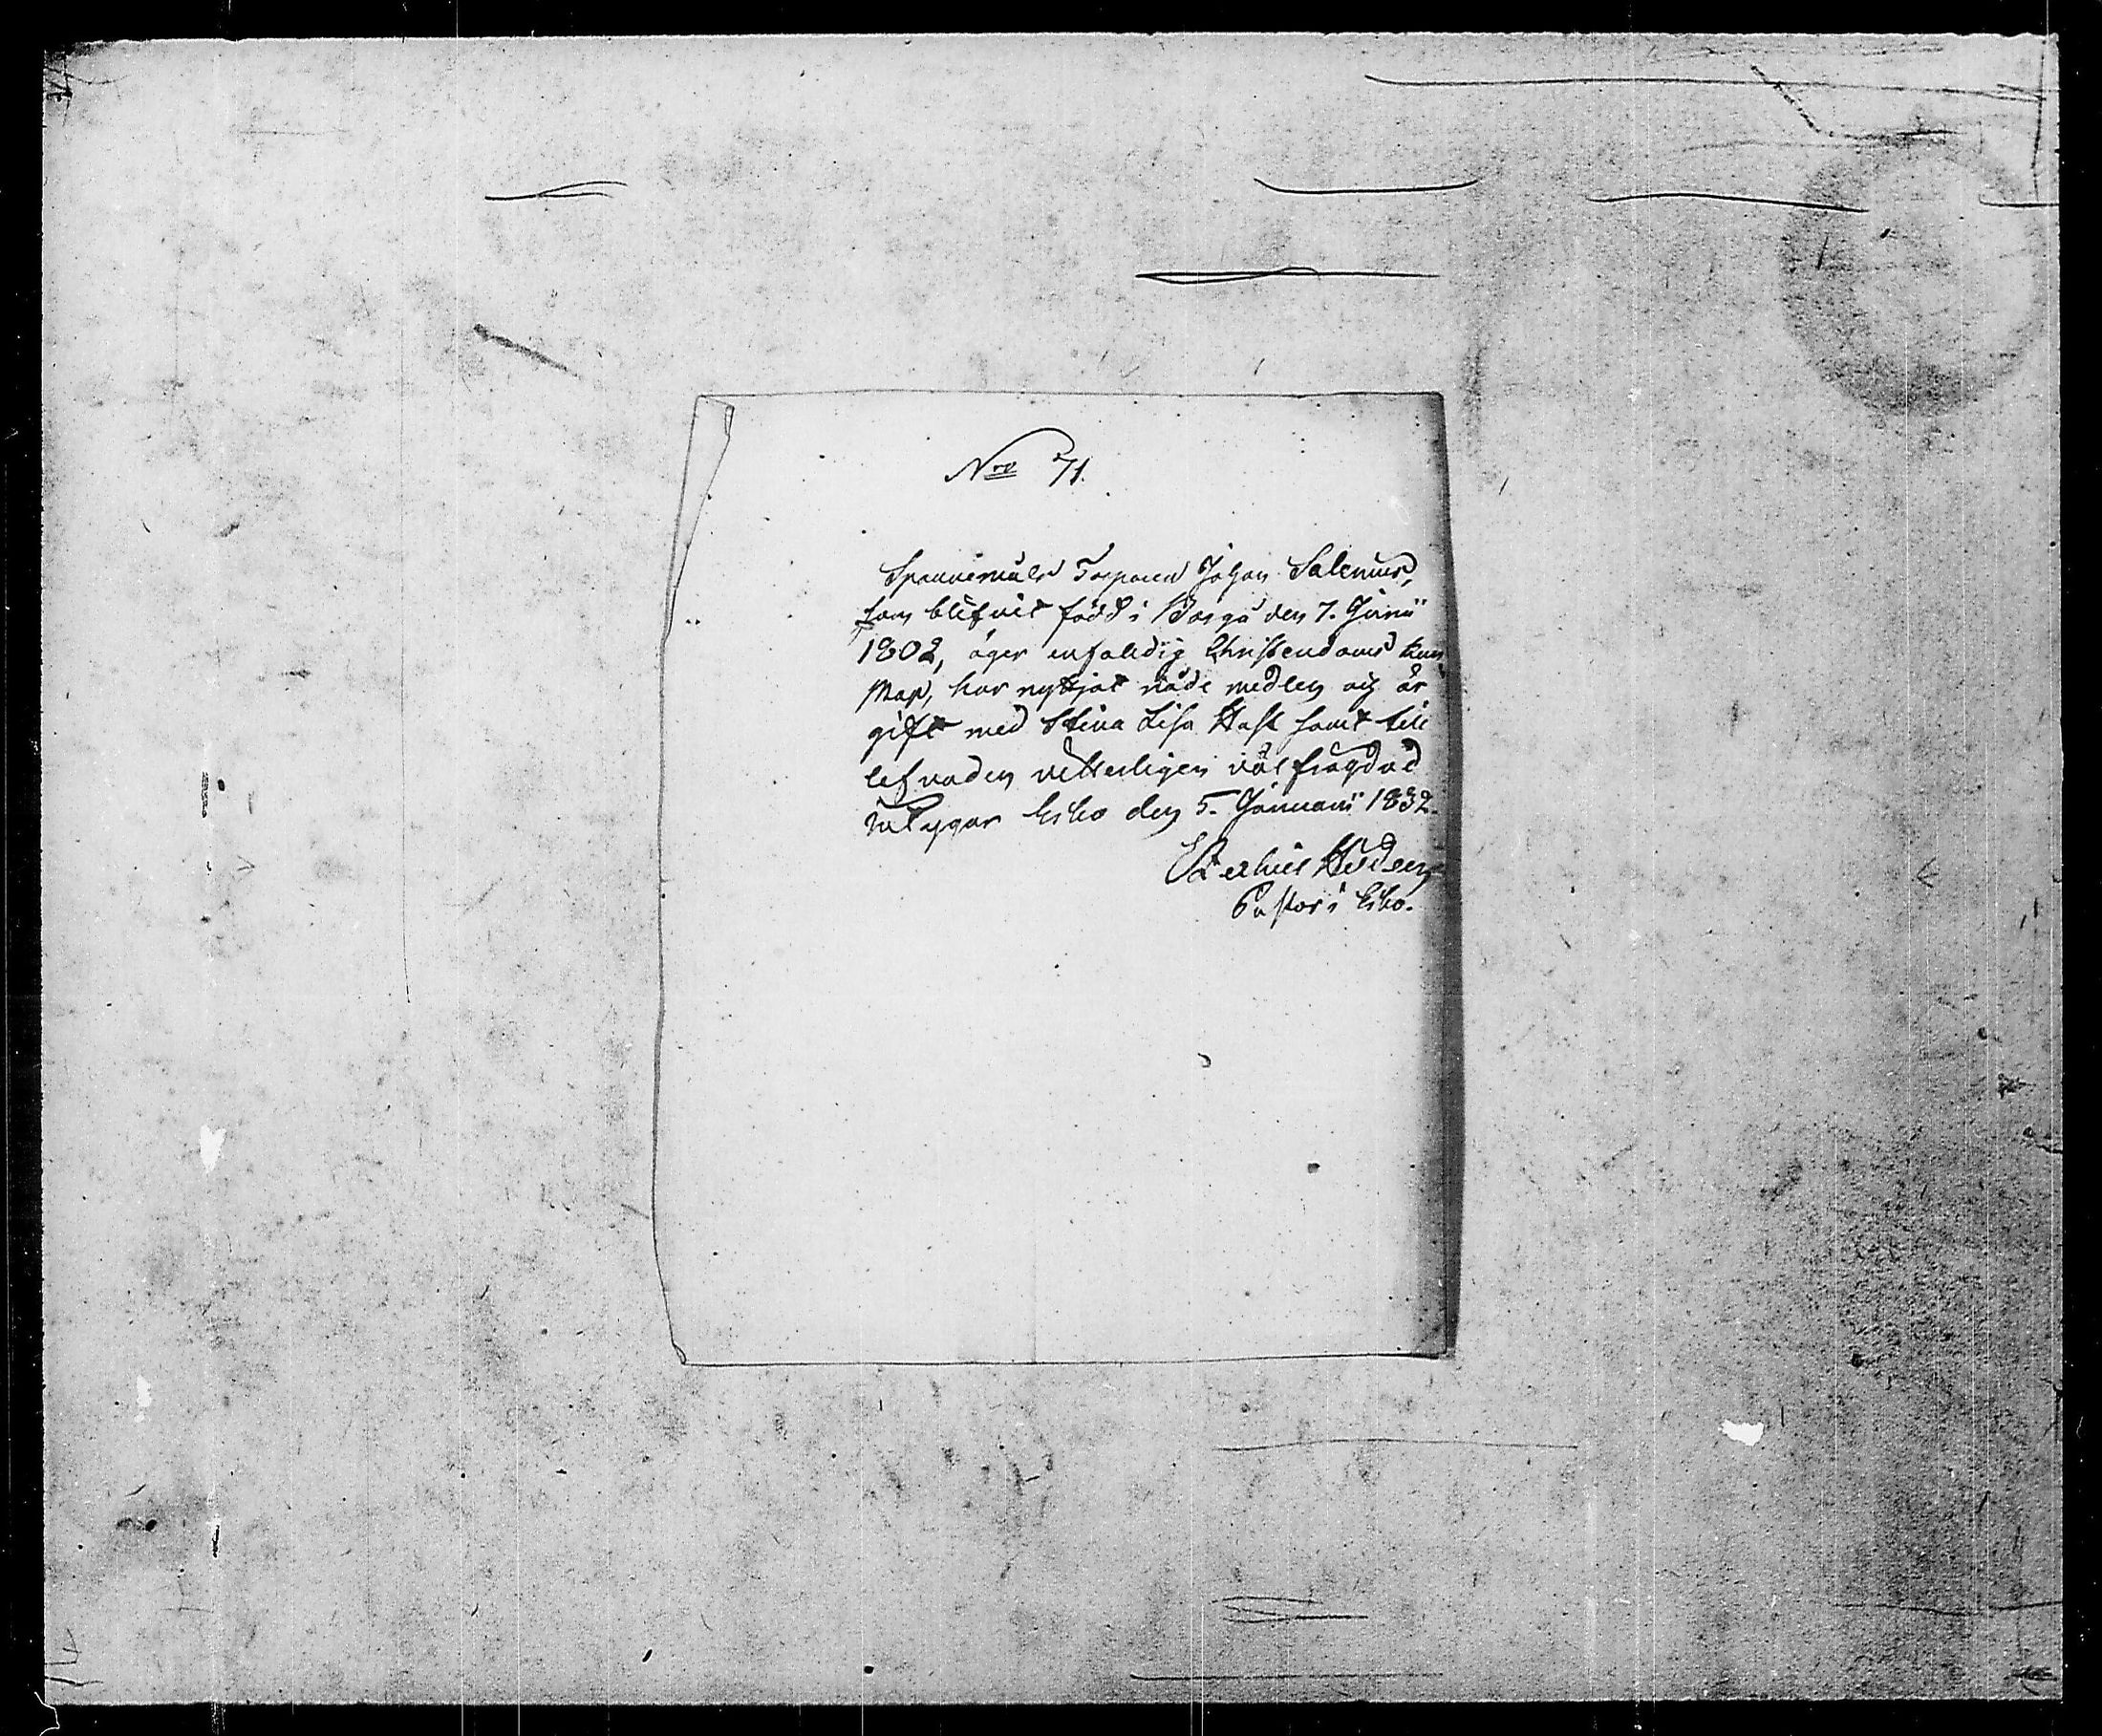 Nro 71.
Torparen Johan Salenius,
som blifvit född i Borgå den 7. Junii
1802, äger enfaldig Christendoms kun
skap, har nyttjat nåde medlen och är
gift med Stina Lisa Hast samt till
lefvaden vetterligen väl frägdad
intygar Esbo den 5. Januarii 1832.
Pastor i Esbo.